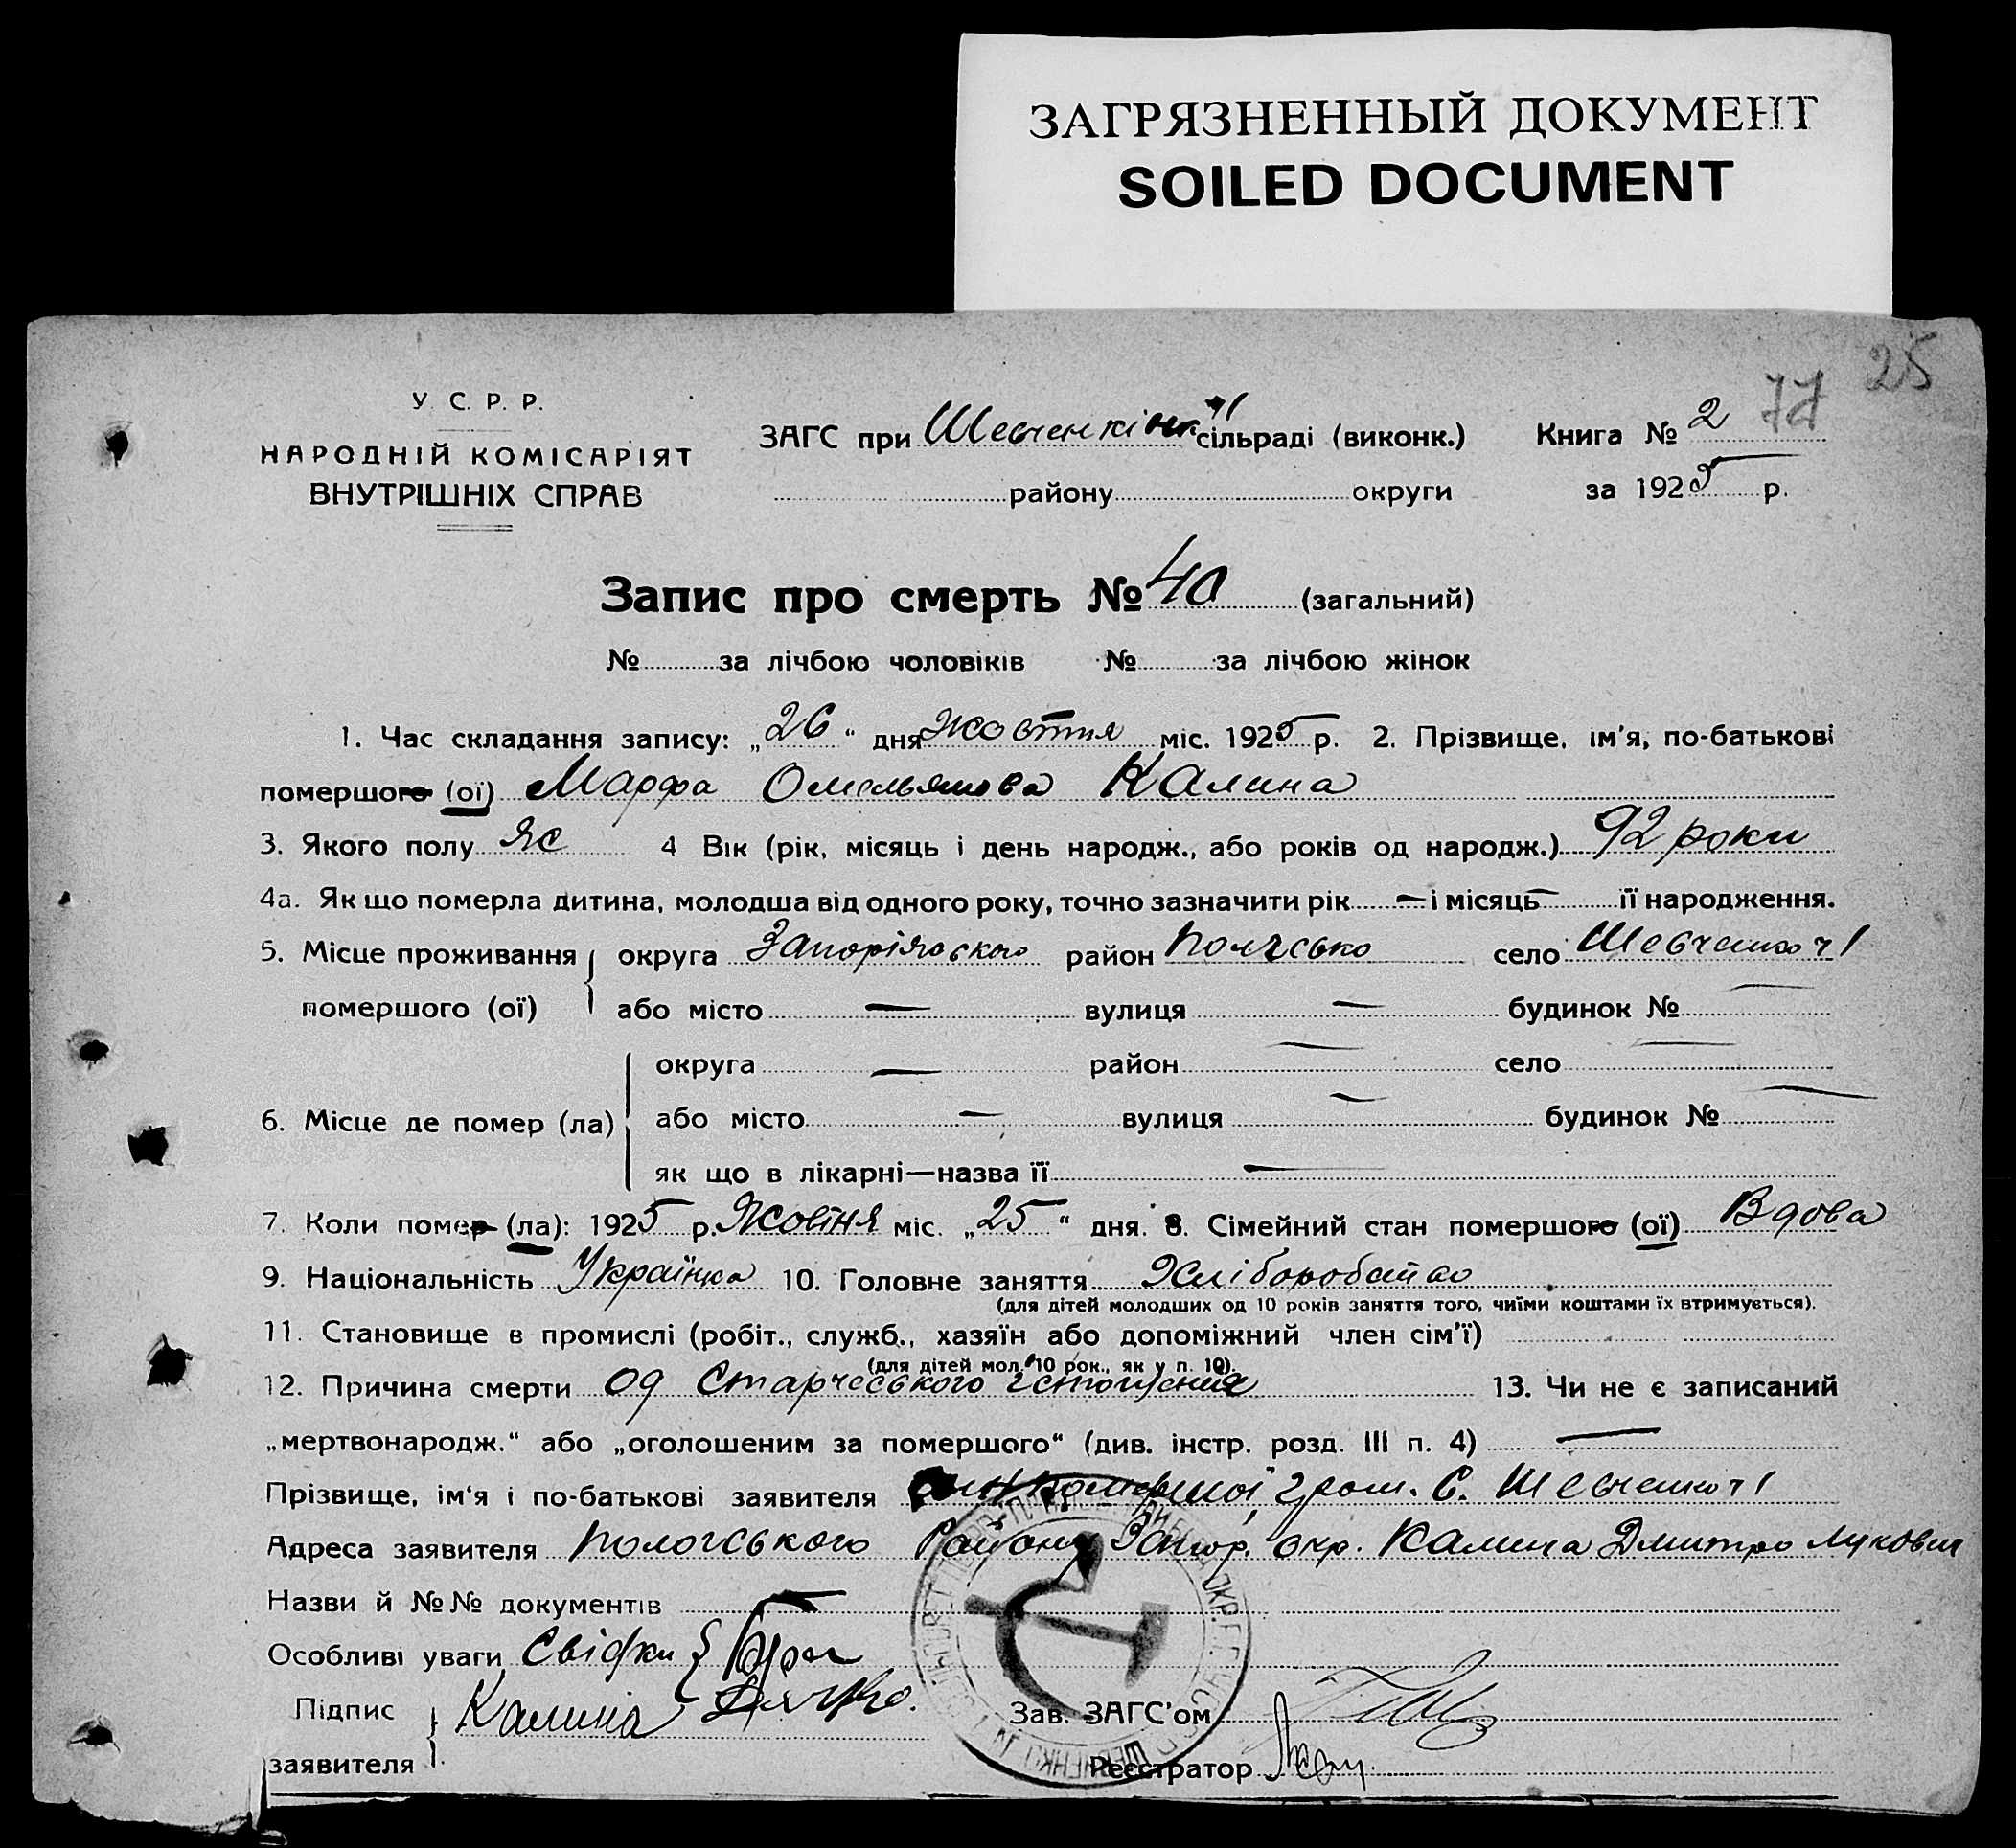 ЗАГРЯЗНЕННЫЙ ДОКУМЕНТ
SOILED DOCUMENT
25
77
У. С. Р. Р.
НАРОДНІЙ КОМІСАРІЯТ
ВНУТРІШНІХ СПРАВ
ЗАГС при сільраді (виконк.) Книга № 2
району округи за 1925 р.
Запис про смерть № 40 (загальний)
№ за лічбою чоловіків № за лічбою жінок
1. Час складання запису: „26“ дня жовтня міс. 1925 р. 2. Прізвище, ім'я, по-батькові
помершого (ої) Марфа Омельянова Калина
3. Якого полу Ж 4 Вік (рік, місяць і день народж., або років од народж.) 92 роки
4а. Як що померла дитина, молодша від одного року, точно зазначити рік — і місяць — її народження.
5. Місце проживання округа район село Шевченко ч 1
помершого (ої) або місто — вулиця — будинок № —
округа — район — село —
6. Місце де помер (ла) або місто — вулиця — будинок № —
як що в лікарні—назва її —
7. Коли помер (ла): 1925 р. Жовтня міс. „25“ дня. 8. Сімейний стан помершого (ої) Вдова
9. Національність Українка 10. Головне заняття
(для дітей молодших од 10 років заняття того, чиїми коштами їх втримується).
11. Становище в промислі (робіт., служб., хазяїн або допоміжний член сім'ї)
(для дітей мол. 10 рок., як у п. 10).
12. Причина смерти од Старчеського 13. Чи не є записаний
„мертвонародж.“ або „оголошеним за помершого“ (див. інстр. розд. III п. 4) —
Прізвище, ім'я і по-батькові заявителя помершої гром. С. Шевченко ч 1
Адреса заявителя Пологського Району Запор. Окр. Калина Дмитро
Назви й №№ документів —
Особливі уваги Свідки
Підпис Калина Зав. ЗАГС'ом
заявителя Реєстратор